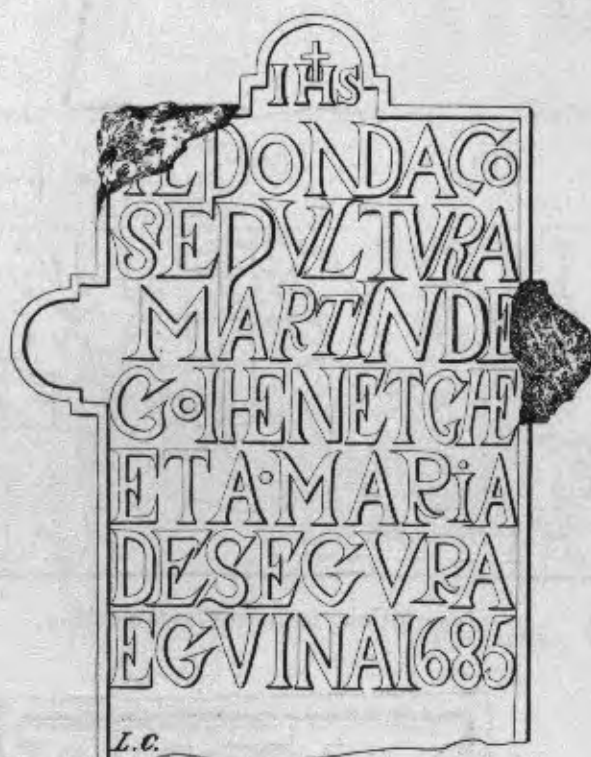 IHS
ILDONDACO
SEPVLTVRA
MARTINDE
GOIHENETCHE
ETA·MARiA
DESEGVRA
EGVINAI685
L.C.